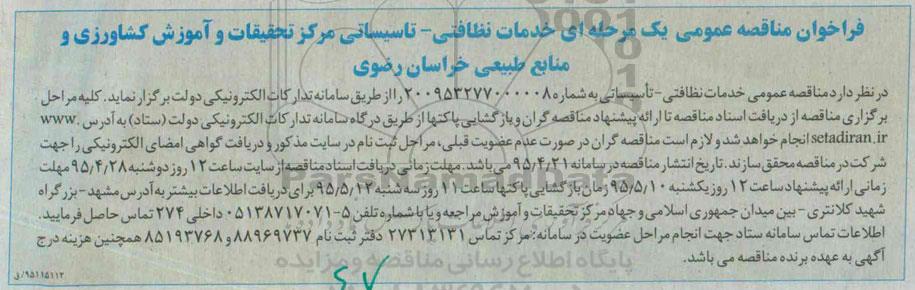 فراخوان مناقصه عمومی یک مرحله ای خدمات نظافتی- تاسیساتی مرکز تحقیقات و آموزش کشاورزی و
منابع طبیعی خراسان رضوی
در نظر دارد مناقصه عمومی خدمات نظافتی-تأسیساتی به شماره ۲۰۰۹۵۳۲۷۷۰۰۰۰۰۸ را از طریق سامانه تدارکات الکترونیکی دولت برگزار نماید. کلیه مراحل
برگزاری مناقصه از دریافت اسناد مناقصه تا ارائه پیشنهاد مناقصه گران و بازگشایی پاکتها از طریق درگاه سامانه تدارکات الکترونیکی دولت (ستاد) به آدرس .www
setadiran.ir انجام خواهد شد و لازم است مناقصه گران در صورت عدم عضویت قبلی، مراحل ثبت نام در سایت مذکور و دریافت گواهی امضای الکترونیکی را جهت
شرکت در مناقصه محقق سازند. تاریخ انتشار مناقصه در سامانه ۹۵/۴/۲۱ می باشد. مهلت زمانی دریافت اسناد مناقصه از سایت ساعت ۱۲ روز دوشنبه ۹۵/۴/۲۸ مهلت
زمانی ارائه پیشنهاد ساعت ۱۲ روز یکشنبه ۹۵/۵/۱۰ زمان بازگشایی پاکتها ساعت ۱۱ روز سه شنبه ۹۵/۵/۱۲ برای دریافت اطلاعات بیشتر به آدرس مشهد- بزرگراه
شهید کلانتری - بین میدان جمهوری اسلامی و جهاد مرکز تحقیقات و آموزش مراجعه و یا با شماره تلفن ۵-۰۵۱۳۸۷۱۷۰۷۱ داخلی ۲۷۴ تماس حاصل فرمایید.
اطلاعات تماس سامانه ستاد جهت انجام مراحل عضویت در سامانه: مرکز تماس ۲۷۳۱۳۱۳۱ دفتر ثبت نام ۸۸۹۶۹۷۳۷ و ۸۵۱۹۳۷۶۸ همچنین هزینه درج
آگهی به عهده برنده مناقصه می باشد.
۹۵۱۱۵۱۱۲/ق
پایگاه اطلاع رسانی مناقصه و مزایده
ParsNamadData